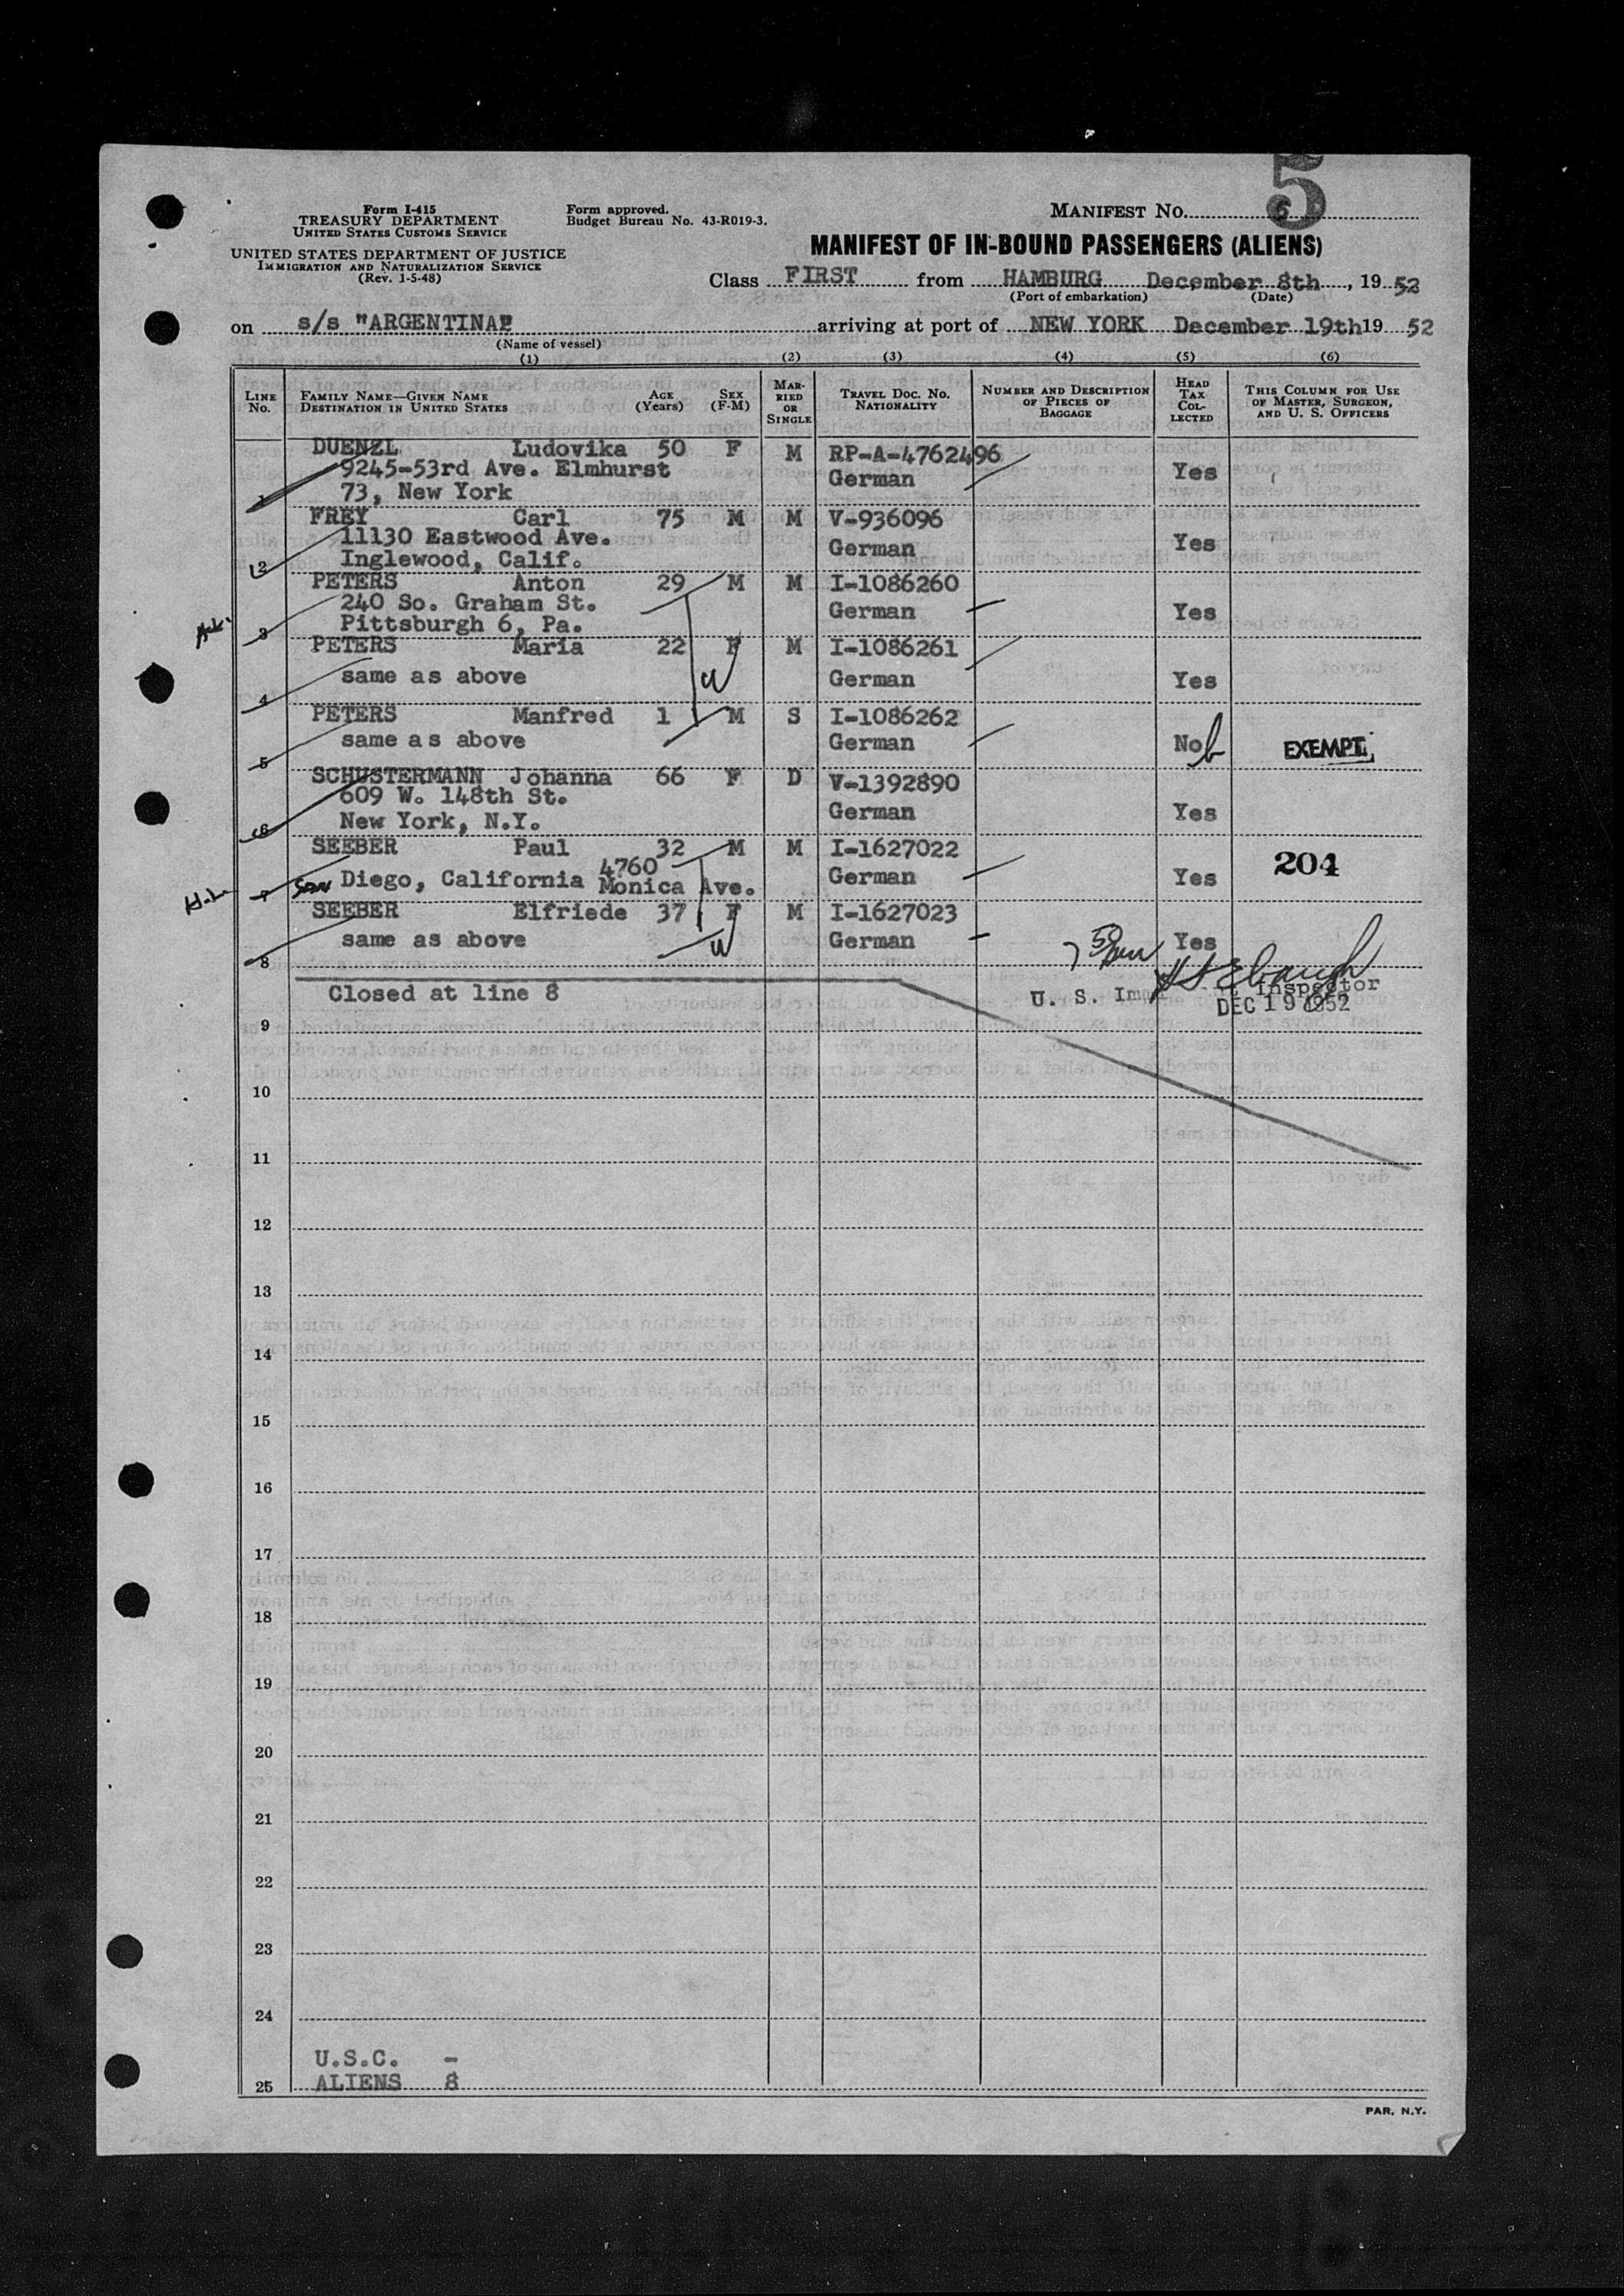 5
Form I-415
TREASURY DEPARTMENT
UNITED STATES CUSTOMS SERVICE
Form approved.
Budget Bureau No. 43-R019-3.
MANIFEST NO. 6
UNITED STATES DEPARTMENT OF JUSTICE
IMMIGRATION AND NATURALIZATION SERVICE
(Rev. 1-5-48)
MANIFEST OF IN-BOUND PASSENGERS (ALIENS)
Class FIRST from HAMBURG December 8th, 1952
(Port of embarkation) (Date)
on s/s "ARGENTINA" arriving at port of NEW YORK December 19th 1952
(Name of vessel)
(1) (2) (3) (4) (5) (6)
LINE No. FAMILY NAME—GIVEN NAME DESTINATION IN UNITED STATES AGE (Years) SEX (F-M) MARRIED OR SINGLE TRAVEL DOC. NO. NATIONALITY NUMBER AND DESCRIPTION OF PIECES OF BAGGAGE HEAD TAX COLLECTED THIS COLUMN FOR USE OF MASTER, SURGEON, AND U. S. OFFICERS
DUENZL Ludovika 50 F M RP-A-4762496
9245-53rd Ave. Elmhurst German Yes
1 73, New York
FREY Carl 75 M M V-936096
11130 Eastwood Ave. German Yes
2 Inglewood, Calif.
PETERS Anton 29 M M I-1086260
240 So. Graham St. German Yes
3 Pittsburgh 6, Pa.
PETERS Maria 22 F M I-1086261
same as above German Yes
4
PETERS Manfred 1 M S I-1086262
same as above German No EXEMPT
5
SCHUSTERMANN Johanna 66 F D V-1392890
609 W. 148th St. German Yes
6 New York, N.Y.
SEEBER Paul 32 M M I-1627022
204
7 San Diego, California 4760 Monica Ave. German Yes
SEEBER Elfriede 37 F M I-1627023
same as above German Yes
8
Closed at line 8
U. S. Imm Inspector
DEC 19 1952
9
10
11
12
13
14
15
16
17
18
19
20
21
22
23
24
U.S.C. -
25 ALIENS 8
PAR, N.Y.